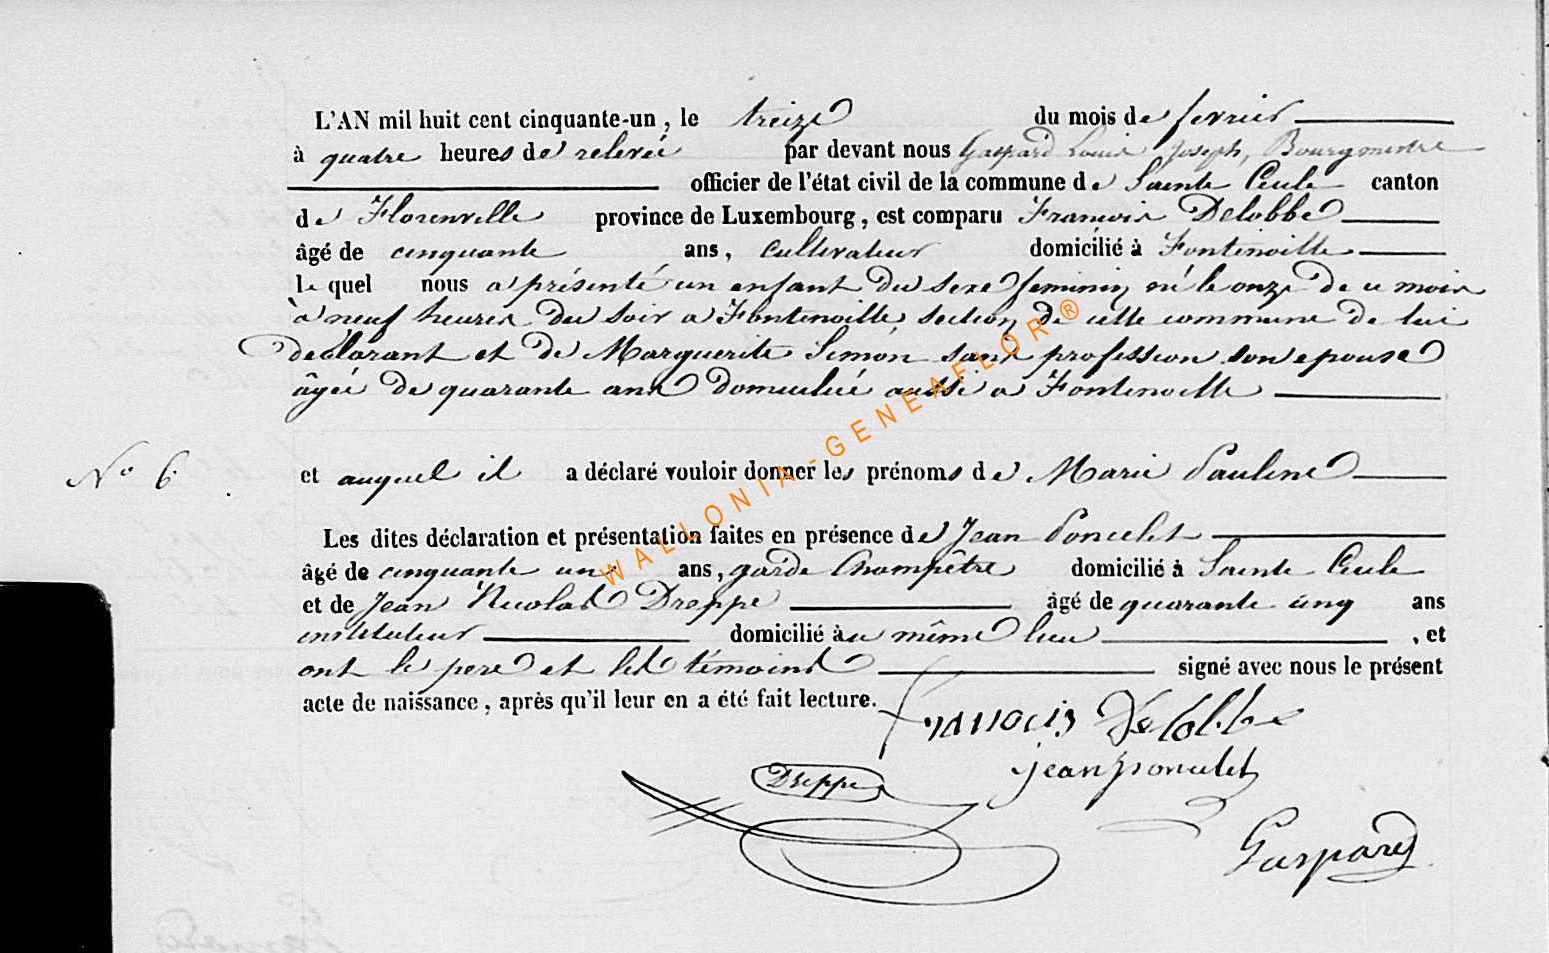 L'AN mil huit cent cinquante-un, le treize du mois de fevrier
à quatre heures de relevée par devant nous Gaspard Louis Joseph, Bourgmestre
officier de l'état civil de la commune de Sainte Cecile canton
de Florenville province de Luxembourg, est comparu François Delobbe
âgé de cinquante ans, cultivateur domicilié à Fontenoille
le quel nous a présenté un enfant du sexe feminin né le onze de ce mois
à neuf heures du soir a Fontenoille section de cette commune de lui
déclarant et de Marguerite Simon sans profession son epouse
âgée de quarante ans domiciliée aussi a Fontenoille
N° 6. et auquel il a déclaré vouloir donner les prénoms de Marie Pauline
Les dites déclaration et présentation faites en présence de Jean Poncelet
âgé de cinquante un ans, garde champêtre domicilié à Sainte Cecile
et de Jean Nicolas Dreppe âgé de quarante cinq ans
instituteur domicilié au même lieu , et
ont le pere et les témoins signé avec nous le présent
acte de naissance, après qu'il leur en a été fait lecture.
francois Delobbe
jean poncelet
Dreppe
Gaspard
WALLONIA-GENEAFLOR®